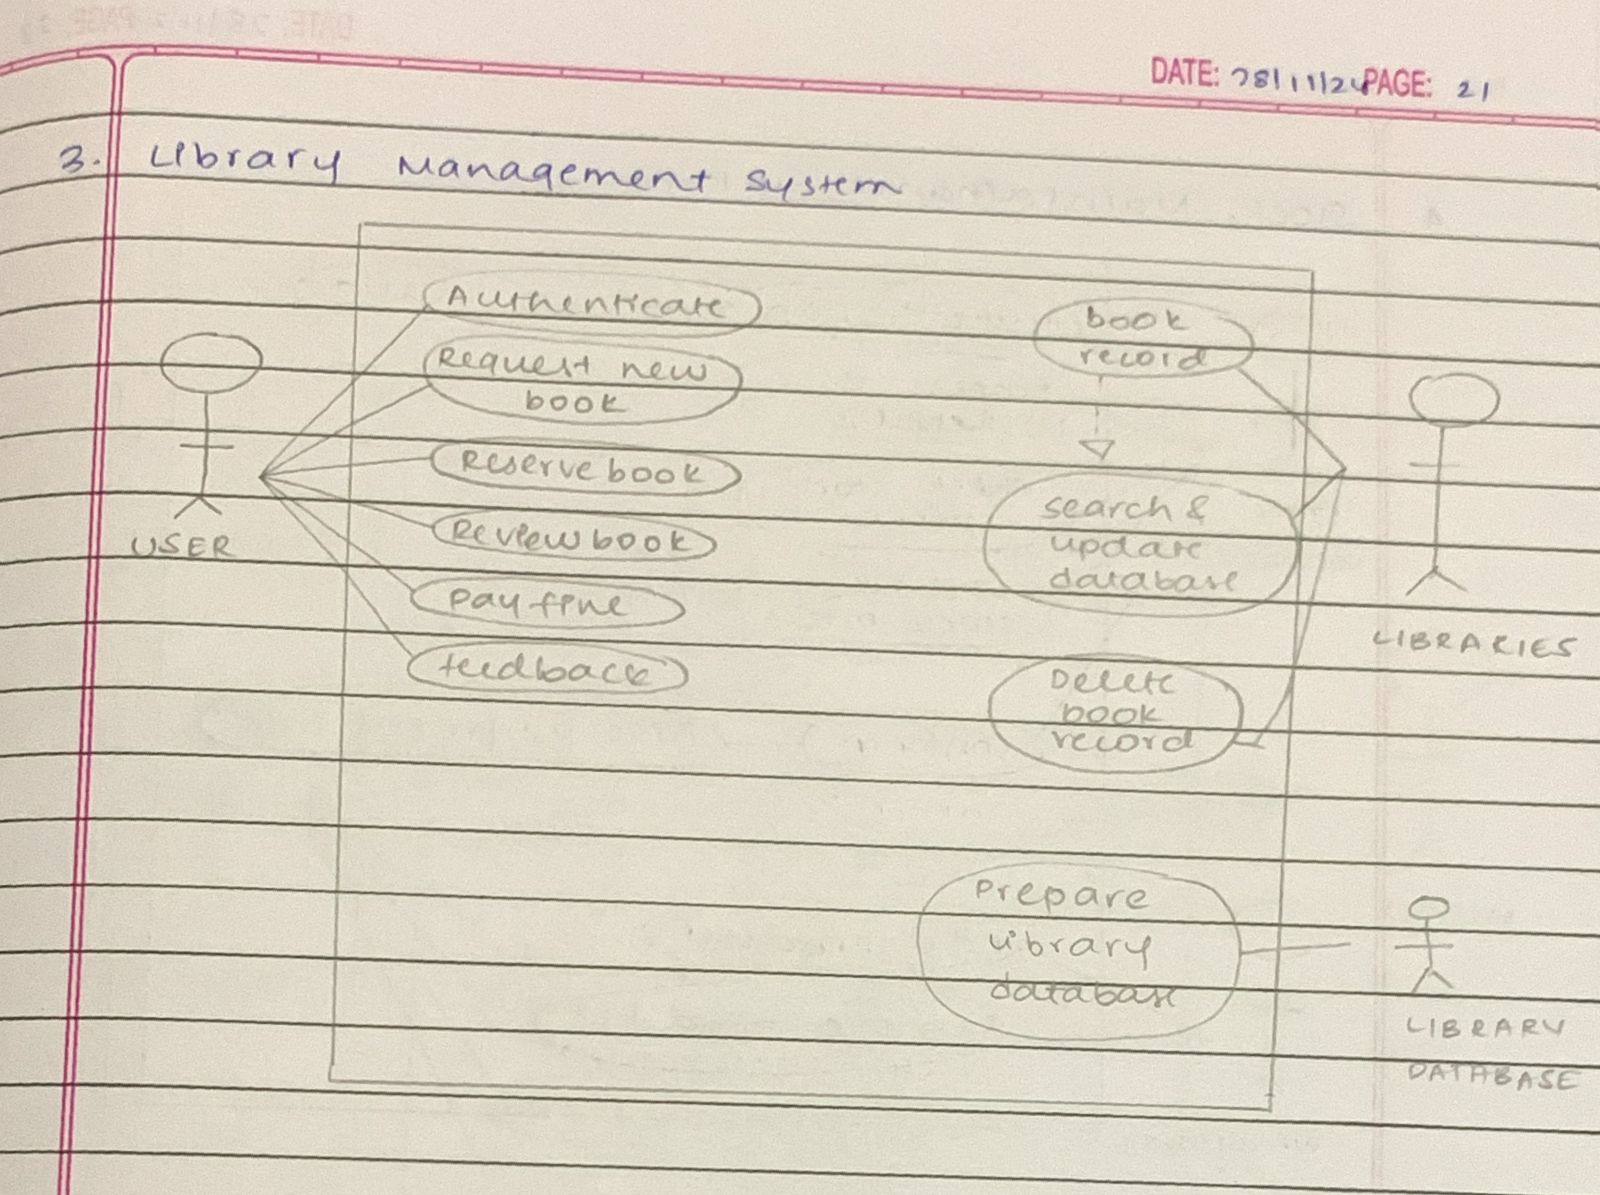 DATE: 28/11/24 PAGE: 21
3. Library Management System
Authenticate
Request new
book
Reserve book
Review book
Pay fine
feedback
USER
book
record
search &
update
database
Delete
book
record
LIBRARIES
Prepare
library
database
LIBRARY
DATABASE